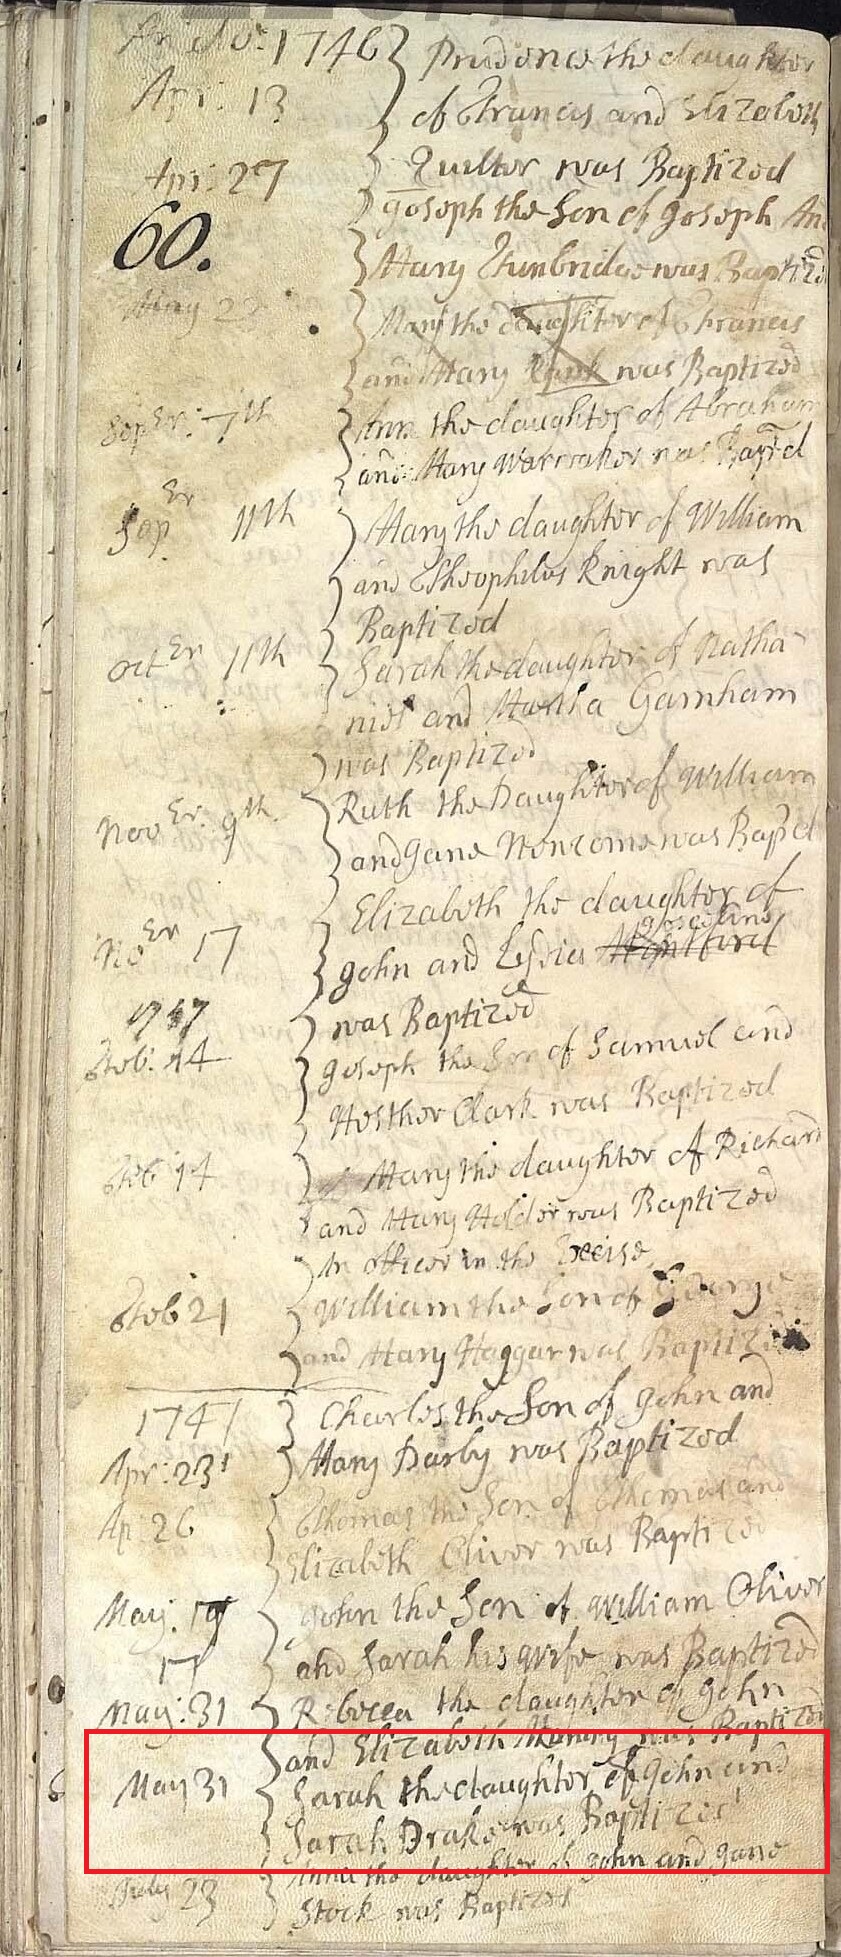 An Do: 1746 Prudence the daughter
Apr: 13 of Francis and Elizabeth
Quilter was Baptized
Apr: 27 Joseph the Son of Joseph An
60.
Mary Thunbridge was Baptized
May 22 Mary the daughter of Francis
and Mary was Baptized
SepEr: 7th Ann the daughter of Abraham
and Mary Warraker was Bapd
SepEr 11th Mary the daughter of William
and Theophilus Knight was
Baptized
OctEr 11th Sarah the daughter of Natha-
niel and Martha Garnham
was Baptized
NovEr: 9th. Ruth the Daughter of William
and Jane was Bapd
Elizabeth the daughter of
NoEr 17 John and Lydia
was Baptized
1747
Feb: 14 Joseph the Son of Samuel and
Hesther Clark was Baptized
Feb 14 Mary the daughter of Richard
and Mary Holder was Baptized
An officer in the Excise
Feb 21 William the Son of George
and Mary Haggar was Baptized
1747 Charles the Son of John and
Apr: 23 Mary Darby was Baptized
Ap: 26 Thomas the Son of Thomas and
Elizabeth Oliver was Baptized
May: 17 John the Son of William Oliver
17 and Sarah his wife was Baptized
May: 31 Rebecca the daughter of John
and Elizabeth was Baptized
6 May 31 Sarah the daughter of John and
Sarah Drake was Baptized
July 23 Anna the daughter of John and Jane
Stock was Baptized